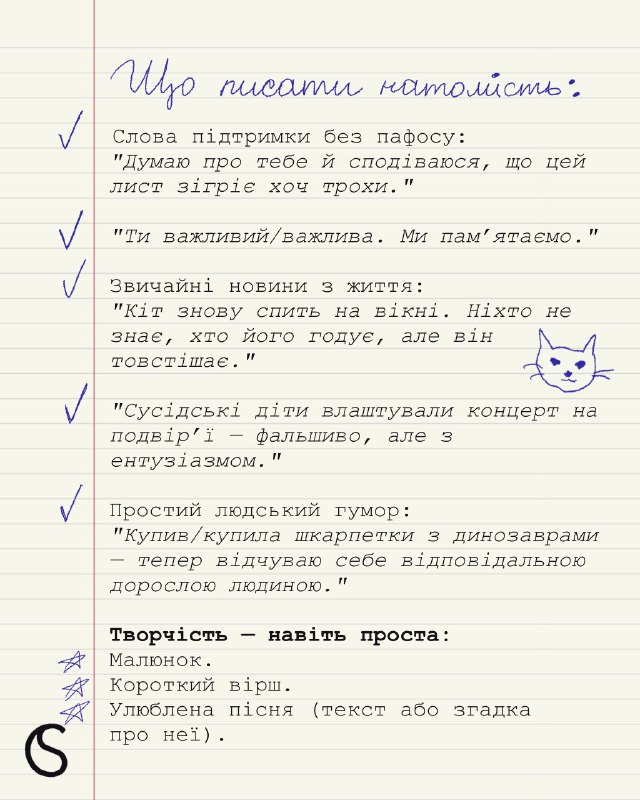 Що писати натомість:
Слова підтримки без пафосу:
"Думаю про тебе й сподіваюся, що цей
лист зігріє хоч трохи."
"Ти важливий/важлива. Ми пам’ятаємо."
Звичайні новини з життя:
"Кіт знову спить на вікні. Ніхто не
знає, хто його годує, але він
товстішає."
"Сусідські діти влаштували концерт на
подвір’ї — фальшиво, але з
ентузіазмом."
Простий людський гумор:
"Купив/купила шкарпетки з динозаврами
— тепер відчуваю себе відповідальною
дорослою людиною."
Творчість — навіть проста:
Малюнок.
Короткий вірш.
Улюблена пісня (текст або згадка
про неї).